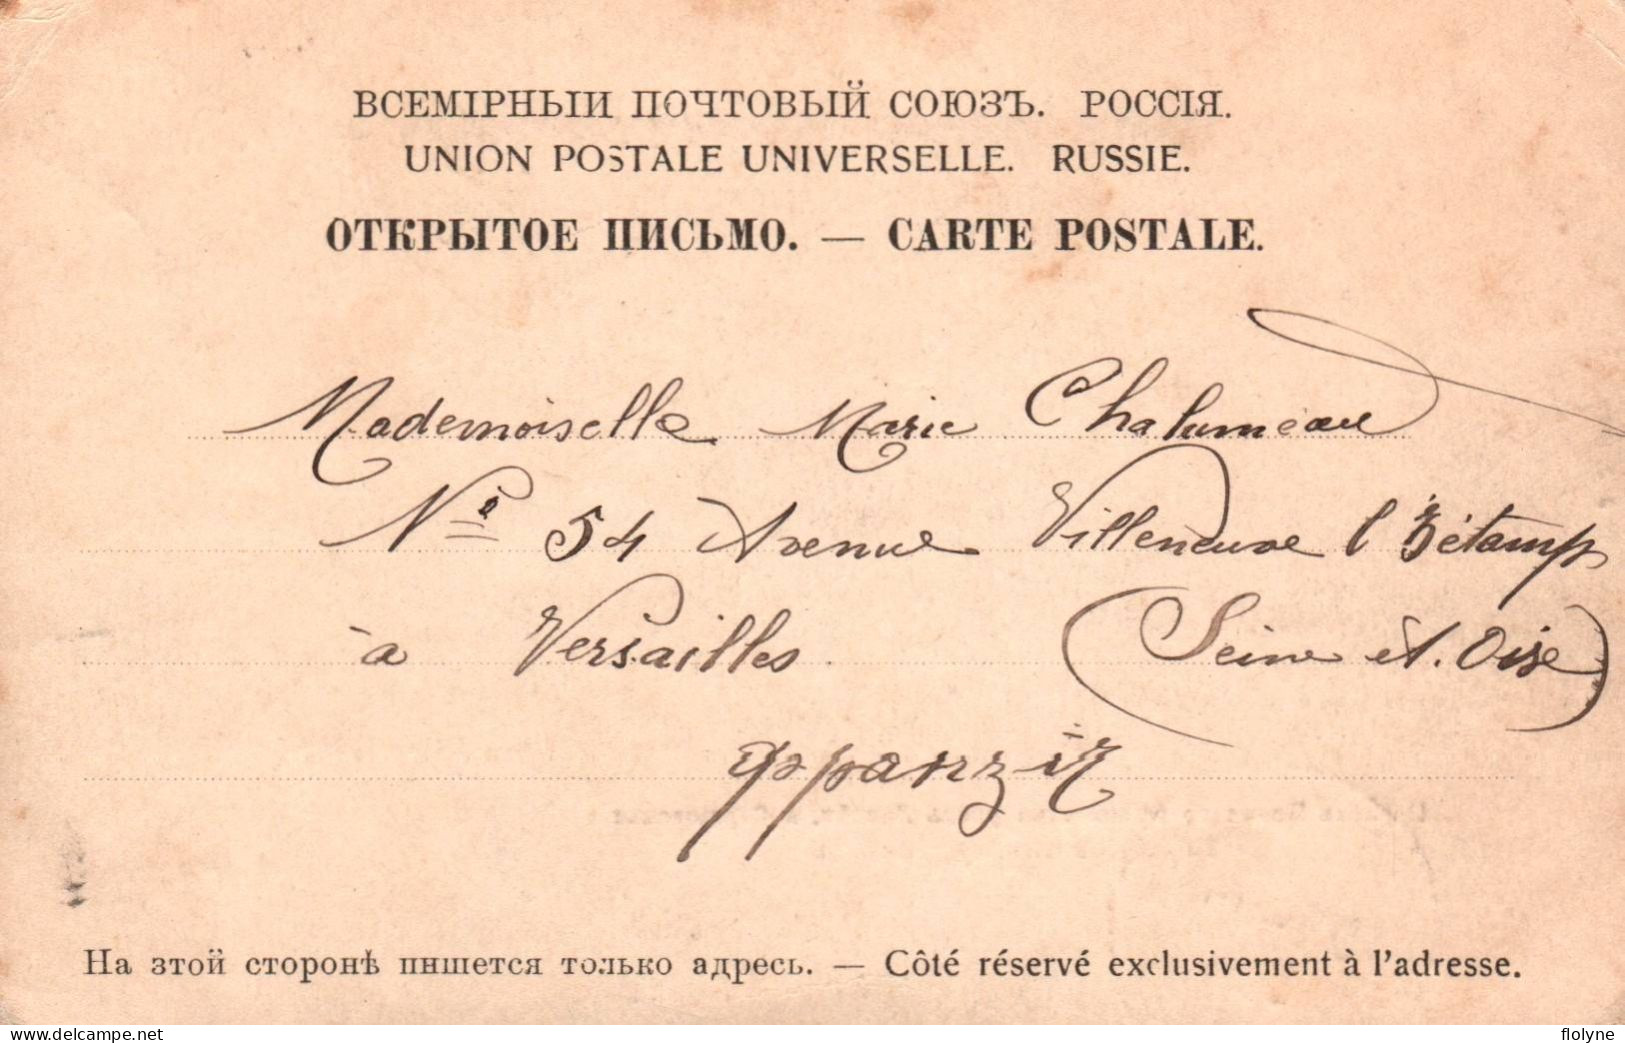 ВСЕМІРНЫИ ПОЧТОВЫЙ СОЮЗЪ. РОССІЯ.
UNION POSTALE UNIVERSELLE. RUSSIE.
ОТКРЫТОЕ ПИСЬМО. — CARTE POSTALE.
Mademoiselle Marie Chalumeau
54 Avenue Villeneuve l'Étamp
à Versailles (Seine et. Oise)
На этой сторонѣ пншется только адресь. — Côté réservé exclusivement à l'adresse.
flolyne